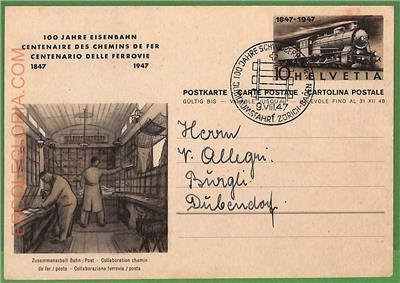 100 JAHRE EISENBAHN
CENTENAIRE DES CHEMINS DE FER
CENTENARIO DELLE FERROVIE
1847 1947
1847-1947
10 HELVETIA
100 JAHRE SCHWEIZER
JUBILÄUMSFAHRT ZÜRICH-BADEN
9.VIII.47
POSTKARTE CARTE POSTALE CARTOLINA POSTALE
GÜLTIG BIS — VALABLE JUSQU'AU — VALEVOLE FINO AL 31 XII 48
Herrn
V. Allegri.
Bürgli
Dübendorf
Zusammenarbeit Bahn/Post - Collaboration chemin
de fer/poste - Collaborazione ferrovia/posta
ERCOLEGLORIA.COM